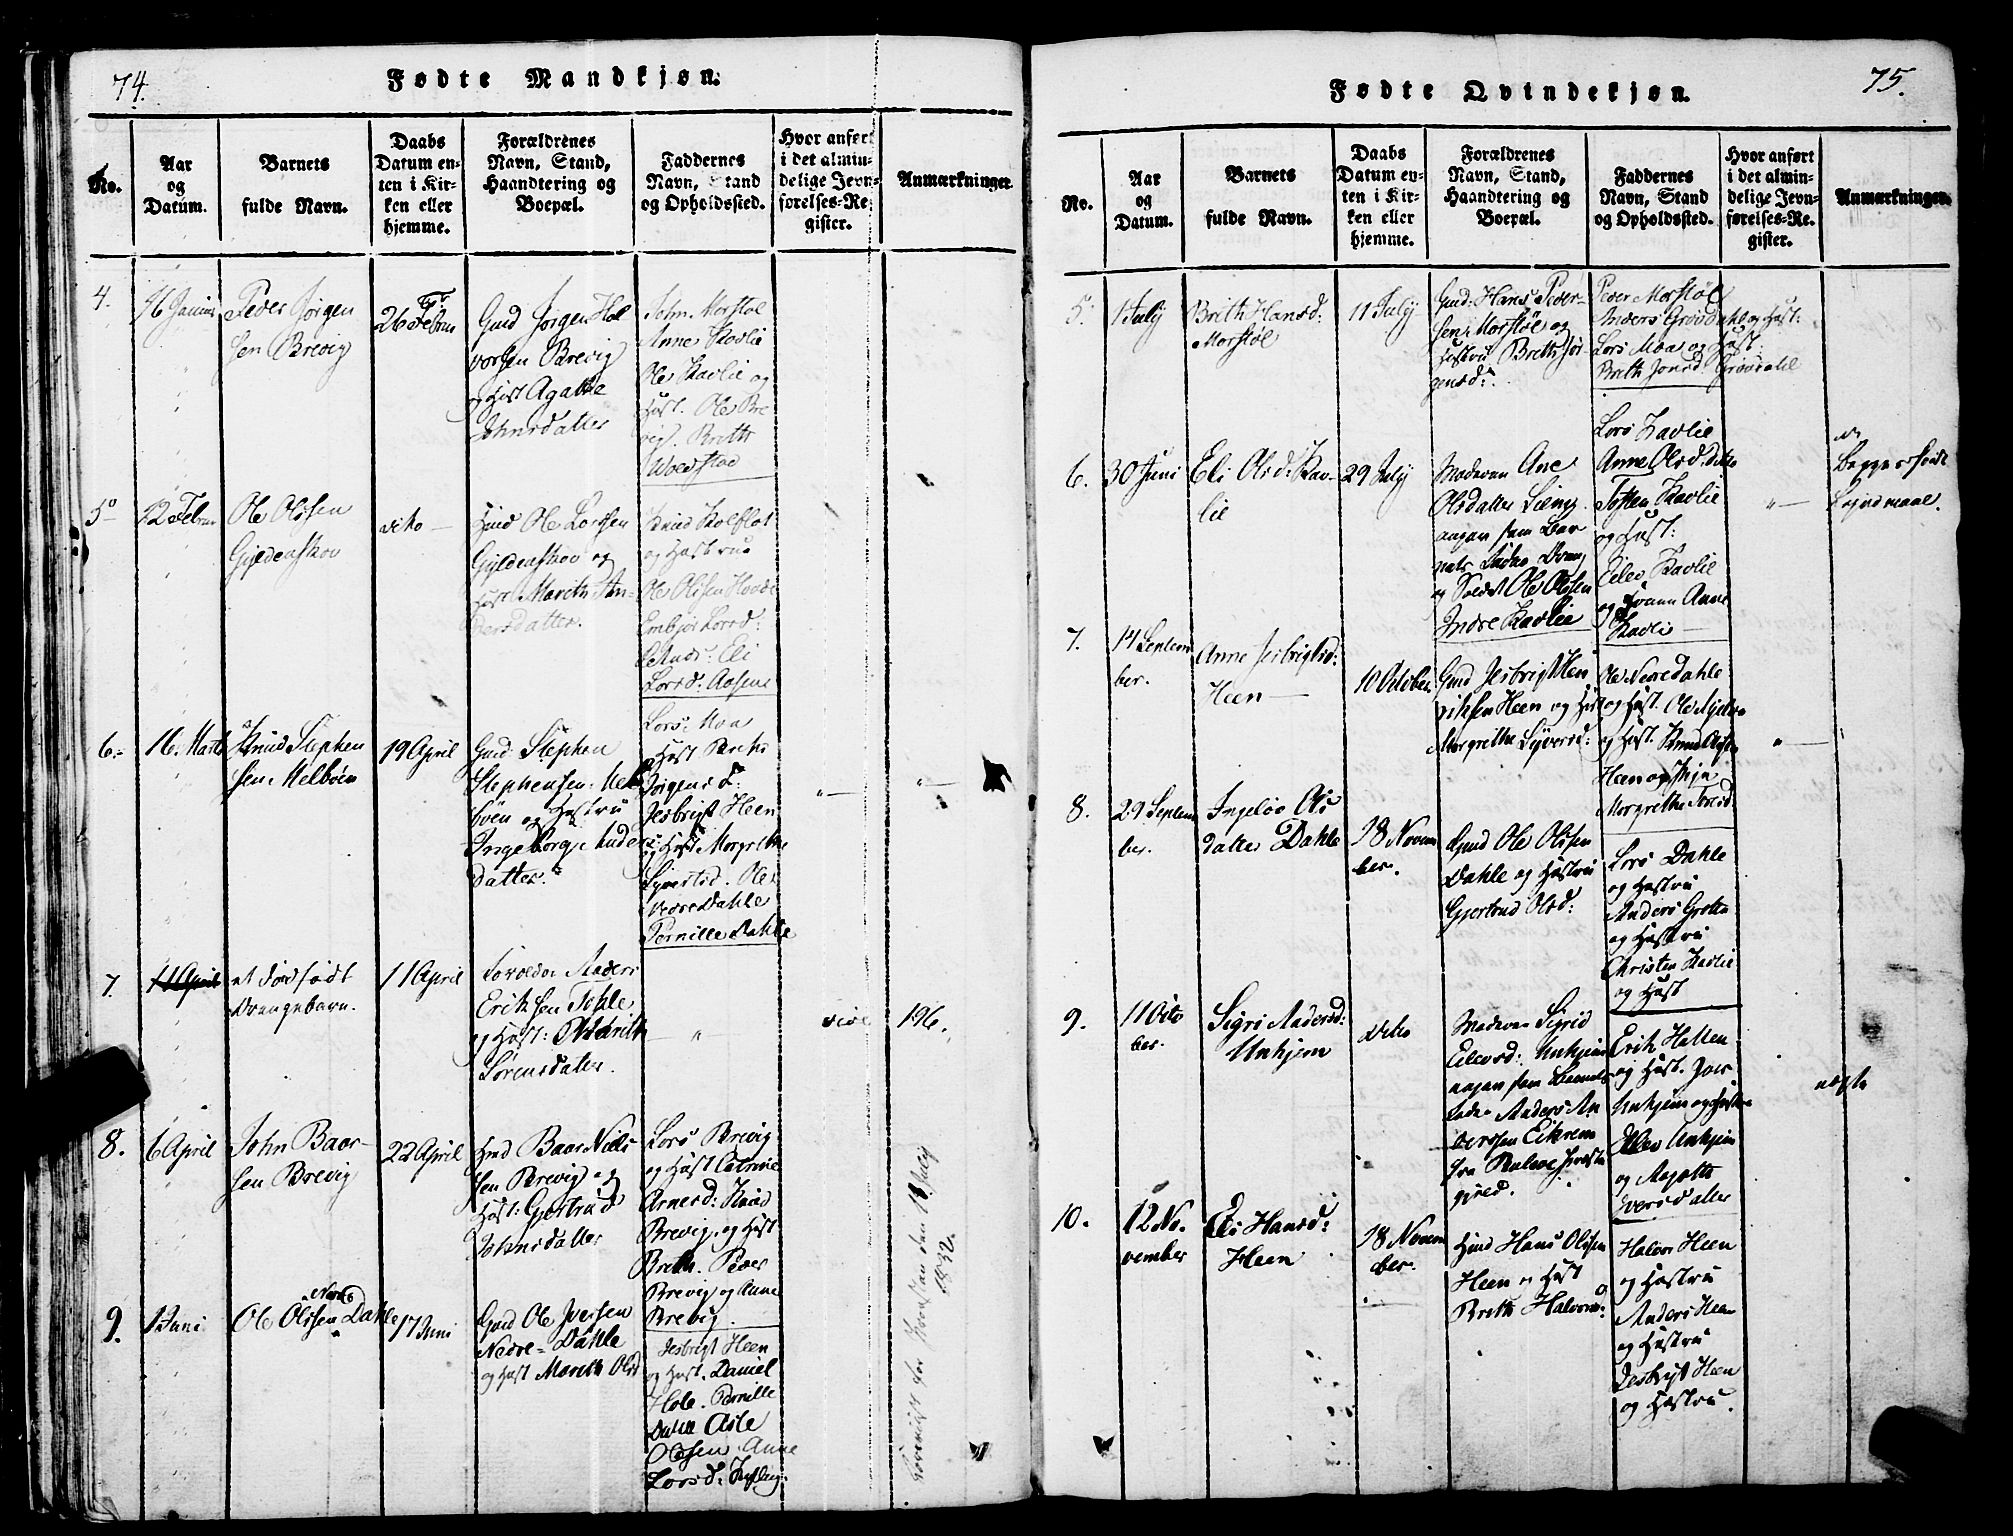 74.
Fødte Mandkjøn.
No.
Aar
og
Datum.
Barnets
fulde Navn.
Daabs
Datum en-
ten i Kir-
ken eller
hjemme.
Forældrenes
Navn, Stand,
Haandtering og
Boepæl.
Faddernes
Navn, Stand
og Opholdssted.
Hvor anført
i det almin-
delige Jevn-
førelses-Re-
gister.
Anmærkninger.
4.
16 Januar
Peder Jørgen
sen Brevig
26 Febru
Gmd Jørgen Hal
vorsen Brevig
og Hust Agathe
Johnsdatter
John Morstøl
Anne Kavlie
Ole Kavlie og
Hust. Ole Bre
vig. Brith
5
12 Febru
Ole Olssen
Gyldenskov
dito
Gmd Ole Larssen
Gyldenskov og
Hust Marith An-
dersdatter.
Knud Kolflot
og Hustrue
Ole Olssen
Embjør Larsd:
Eli
Larsd:
6.
16. Marts
Knud Stephen
sen Melbøen
19 April
Gmd Stephen
Stephensen Mel
bøen og Hustru
Ingeborg Knuds
datter.
Lars Moa
og Hust Brithe
Jørgensd:
Jesbrigt Heen
og Hust Morgrethe
Syversd. Ole
Nedre Dahle
Pernille Dahle
7.
11 April
et dødfødt
Drengebarn.
11 April
Anders
Erichsen
og Hust: Marith
Sørensdatter.
vide
196.
8.
6 April
John Baar-
sen Brevig
22 April
Gmd Baar Niels
sen Brevig og
Hust: Gjertrud
Johnsdatter
Lars Brevig
og Hust Catrine
Arnesd: Knud
Brevig og Hust
Brith. Peder
Brevig og Anne
Brevig.
9.
1 Juni
Ole Olssen Nedre Dahle
17 Juni
Gmd Ole Iversen
Nedre-Dahle
og Hust Marith Olsd
Jesbrigt Heen
og Hust. Daniel
Hole. Pernille
Dahle Asle
Olssen. Anne
Larsd:
den 18 July
1832.
75.
Fødte Qvindekjøn.
No.
Aar
og
Datum.
Barnets
fulde Navn.
Daabs
Datum en-
ten i Kir-
ken eller
hjemme.
Forældrenes
Navn, Stand,
Haandtering og
Boepæl.
Faddernes
Navn, Stand
og Opholdssted.
Hvor anført
i det almin-
delige Jevn-
førelses-Re-
gister.
Anmærkninger.
5.
1 July
Brith Hansd:
Morstøl
11 July
Gmd: Hans Peder-
sen Morstøl og
Hustru Brith Jør-
gensd:
Peder Morstøl
Anders Grøvdahl og Hust:
Lars Moa og Hust:
Brith Jonsd Grøvdahl
6.
30 Juni
Eli Olsd: Kav-
lie
29 July
Moderen Ane
Olsdatter
angav som Bar
nets Fader
og Soldat Ole Olssen
Indre Kavlie
Lars Kavlie
Anne Olsd: ditto
Tosten Kavlie
og Hust:
Eilev Kavlie
og Anne
Kavli
Begges første
Lejermaal.
7.
14 Septem
ber.
Anne Jesbrigtsd:
Heen
10 October
Gmd Jesbrigt Hen
richsen Heen og Hust
Morgrethe Syversd:
Ole Nedredahle
og Hust. Ole Mjelve
og Hust. Knud Olsen
Heen og
Morgrethe
8.
29 Septem
ber.
Ingeløv Ols
datter Dahle
18 Novem
ber.
Gmd Ole Olssen
Dahle og Hustru
Gjertrud Olsd:
Lars Dahle
og Hustru
Anders Grøtta
og Hustru
Christen Kavlie
og Hust
9.
11 Octo
ber.
Sigri Andersd:
Unhjem
dito
Moderen Sigrid
Eilevsd: Unhjem
angav som Barnets
Fader Anders An
derssen Eikrem
fra
Erik Hatten
og Hust.
Unhjem og Hustru
Eilev Unhjem
og
Iversdatter
ægte
10.
12 No-
vember
Eli Hansd:
Heen
18 Novem
ber.
Gmd Hans Olssen
Heen og Hust
Brith Halvorsd:
Halvor Heen
og Hustru
Anders Heen
og Hustru
Jesbrigt Heen
og Hustru.